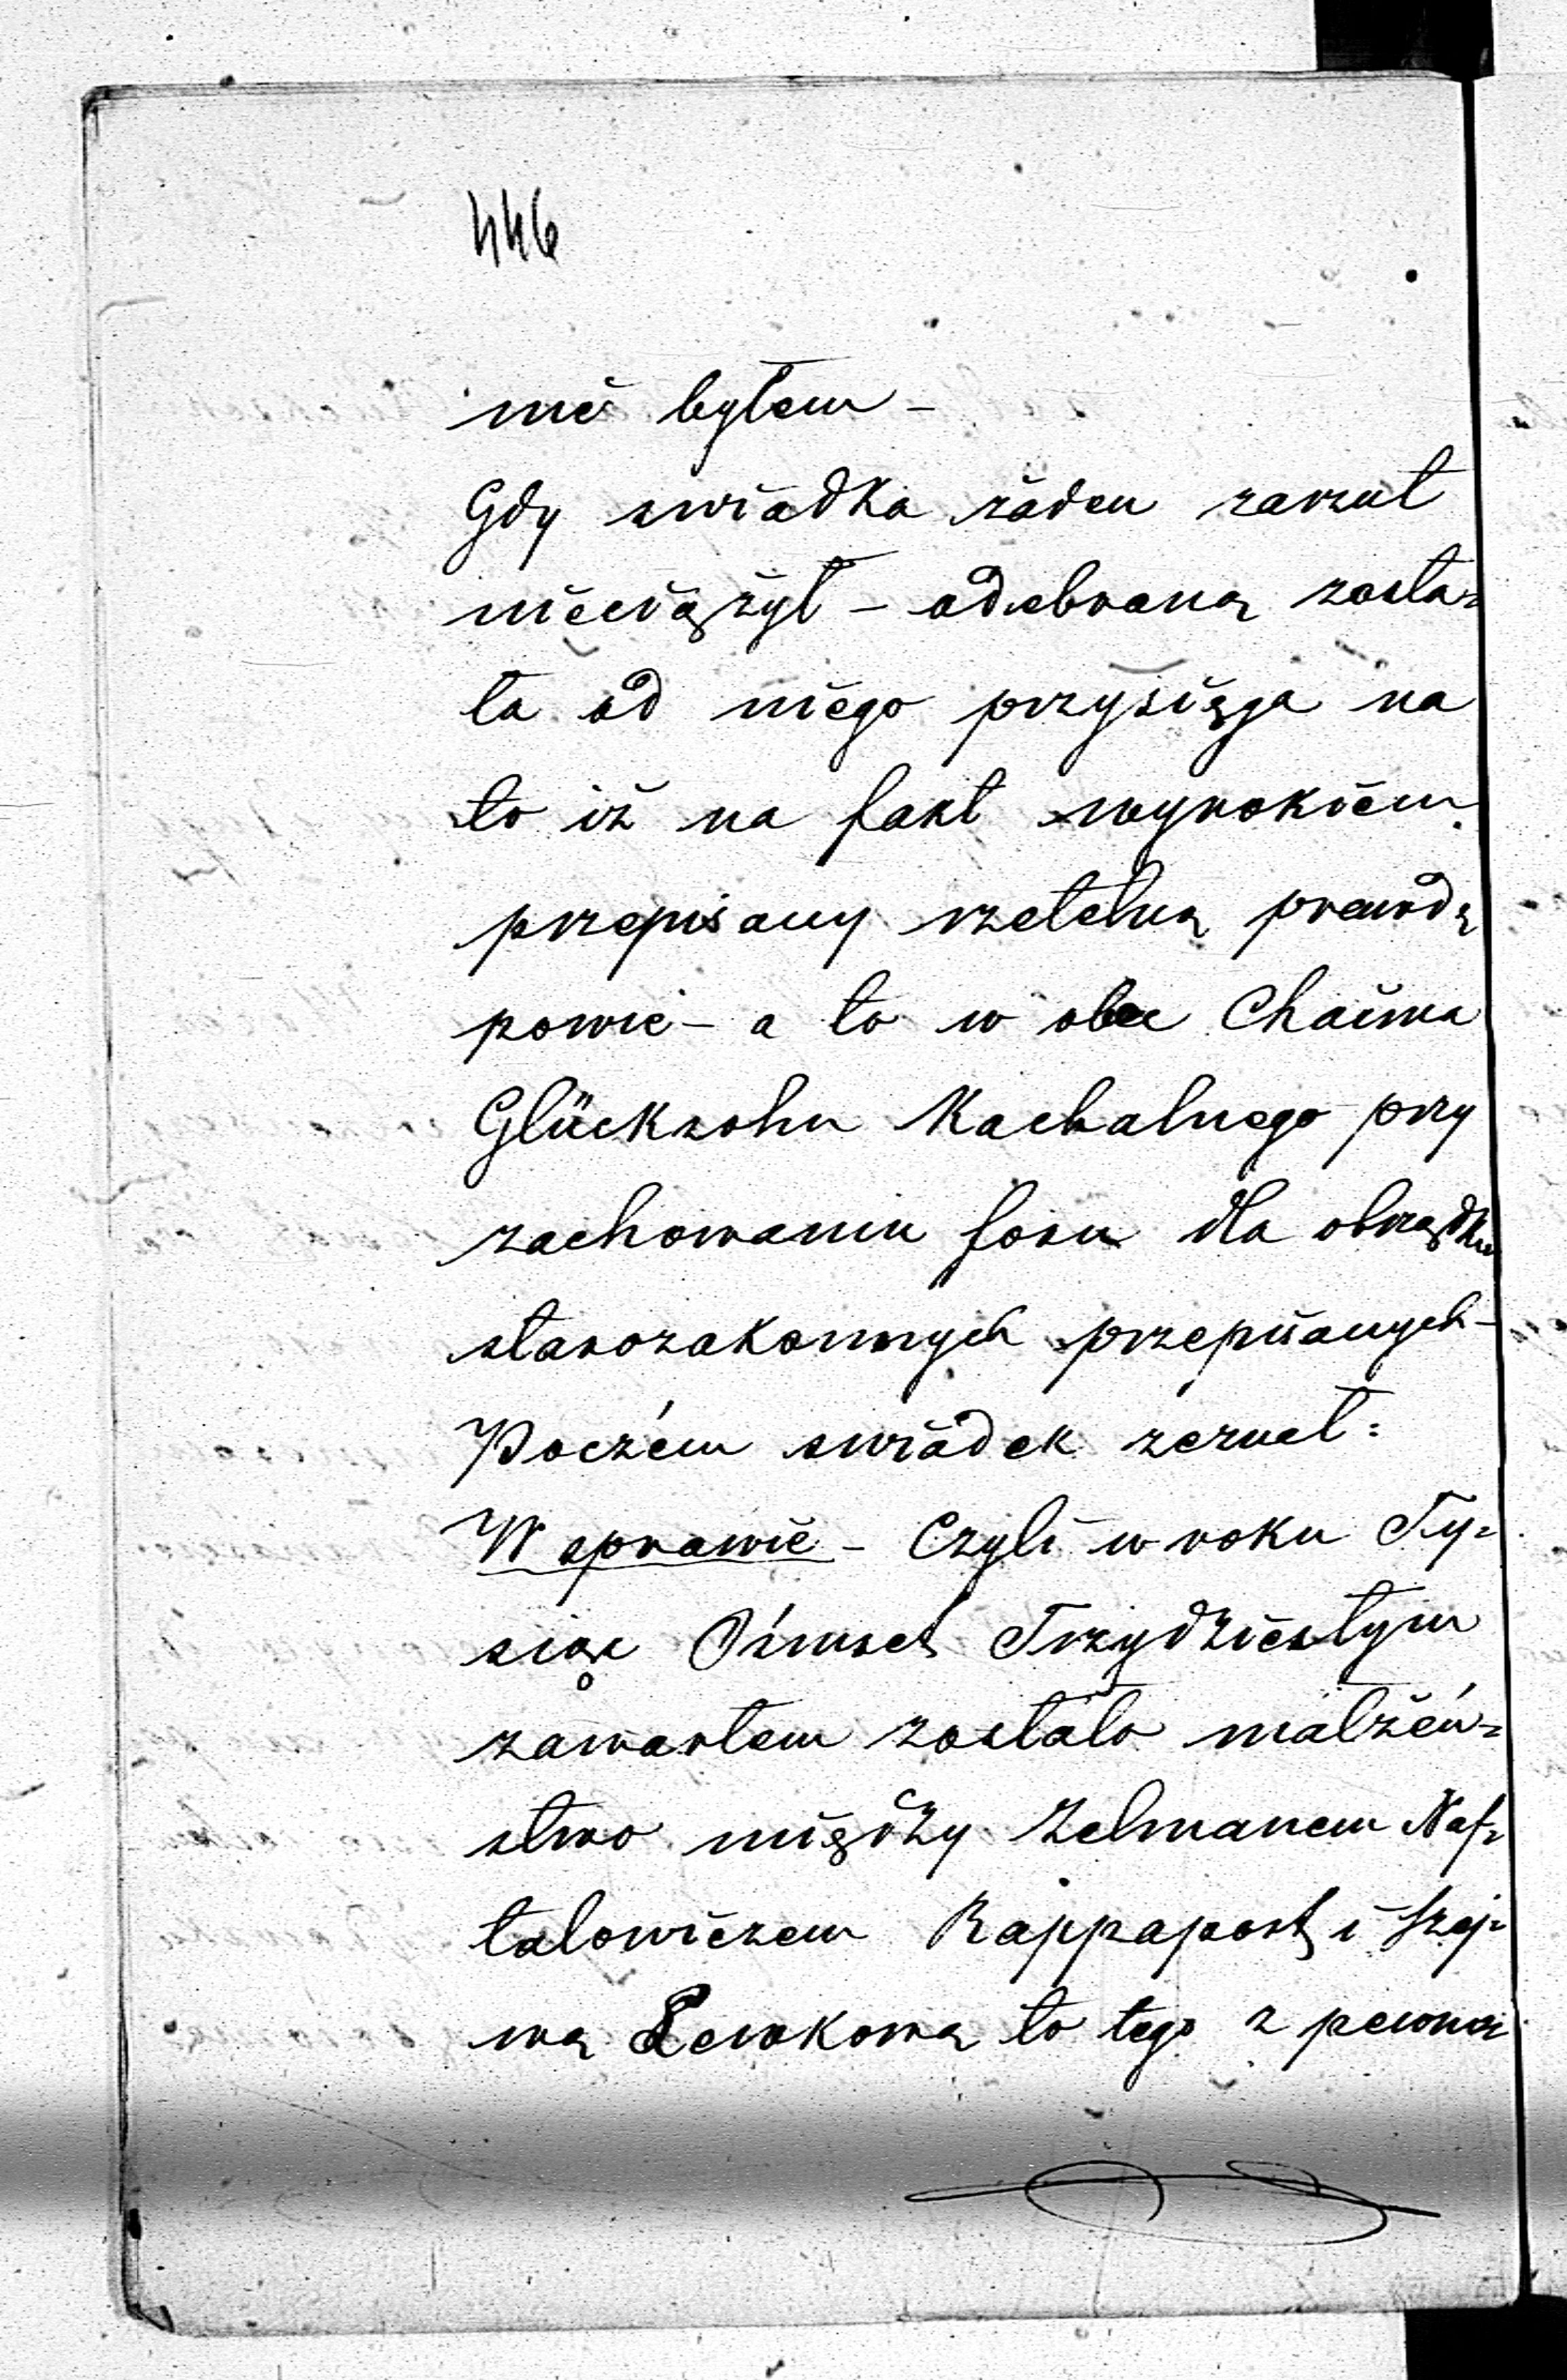 446
nie byłem –
Gdy swiadka żaden zarzut
nieciążył – odebraną zosta=
ła od niego przysięga na
to iż na fakt wyrokiem
przepisany rzetelną prawdę
powie – a to w obec Chaima
Glücksohn Kachalnego przy
zachowaniu form dla obrządku
starozakonnych przepisanych –
Poczém swiadek zeznał:
W sprawie – Czyli w roku Ty=
siąc Ośmset Trzydziestym
zawartem zostało małżeń=
stwo między Zelmanem Naf=
talowiczem Rappaport i Szej=
wą Lewkową to tego z pewną